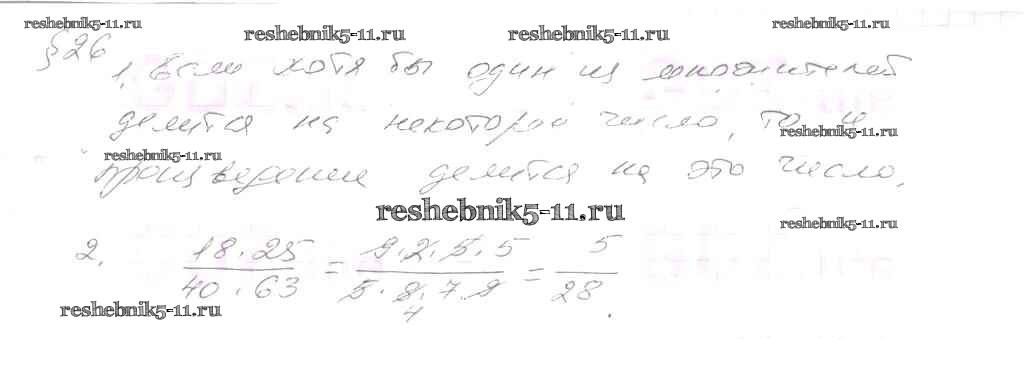 reshebnik5-11.ru
reshebnik5-11.ru reshebnik5-11.ru reshebnik5-11.ru
§ 26
1. Если хотя бы один из множителей
делится на некоторое число, то и
reshebnik5-11.ru
reshebnik5-11.ru
произведение делится на это число.
reshebnik5-11.ru
reshebnik5-11.ru
2. 18·25 / 40·63 = 9·2·5·5 / 5·8·7·9 = 5 / 28.
4
reshebnik5-11.ru